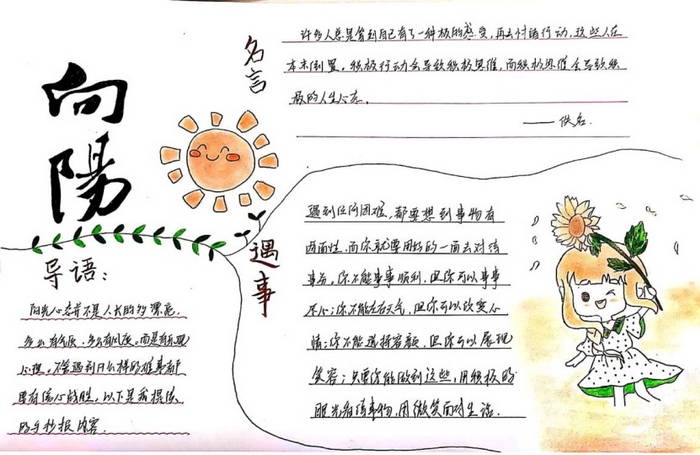 向
陽
名言
许多人总是等到自己有了一种积极的感受，再去付诸行动，这些人在
本末倒置。积极行动会导致积极思维，而积极思维会导致积
极的人生心态。
——佚名
导语：
阳光心态并不是人长的多漂亮，
多么有气质，多么有风度，而是有乐观
心理，不管遇到什么样的难事都
要有信心战胜，以下是我提供
的手抄报内容
遇事
遇到任何困难，都要想到事物有
两面性，而你就要用好的一面去对待
事店，你不能事事顺利，但你可以事事
尽心；你不能左右天气，但你可以改变心
情；你不能选择容颜，但你可以展现
笑容；只要你能做到这些，用积极的
眼光看待事物，用微笑面对生活